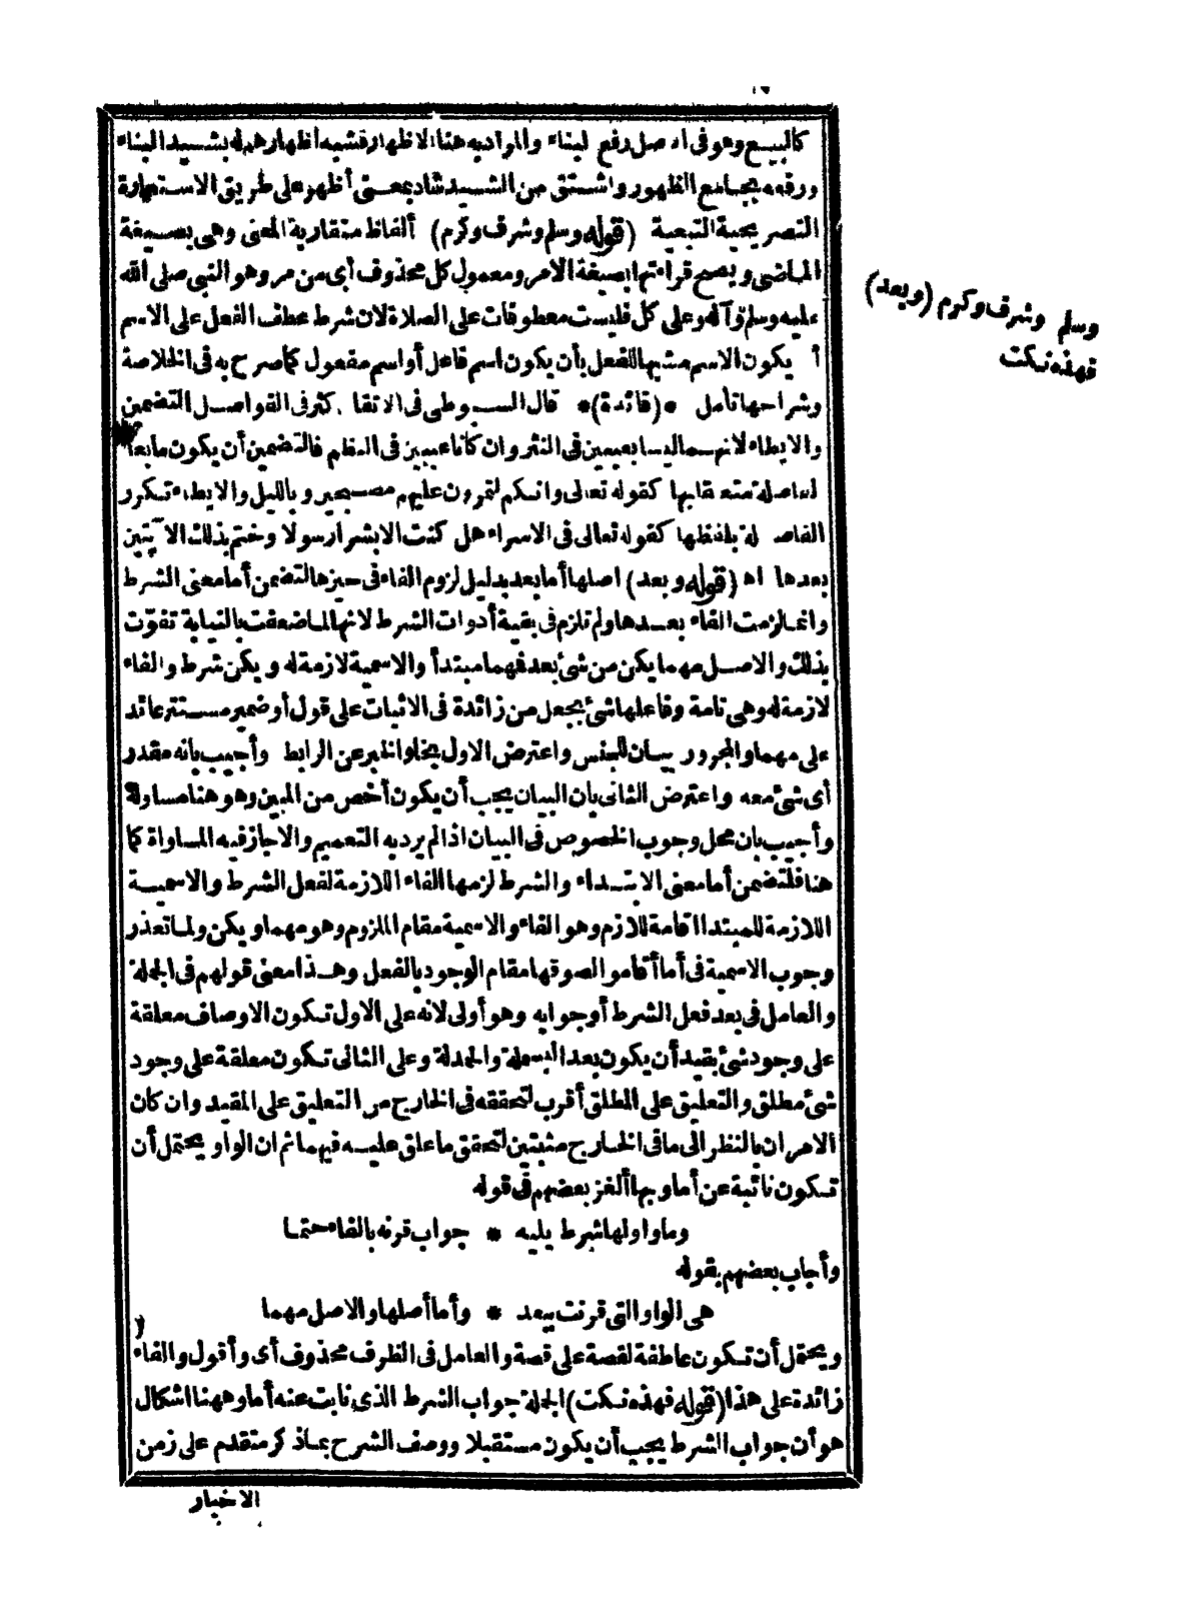 كالبيع وهو فى الاصل رفع البناء والمراد به هنا الاظهار فشبه اظهار همله بشييد البناء
ورفعه بجامع الظهور واشتق من الشييد شاد بمعنى أظهر على طريق الاستعارة
التصريحية التبعية (قوله وسلم وشرف وكرم) ألفاظ متقاربة المعنى وهى بصيغة
الماضى ويصح قراءتها بصيغة الامر ومعمول كل محذوف أى من مر وهو النبى صلى الله
عليه وسلم وآله وعلى كل فليست معطوفات على الصلاة لان شرط عطف الفعل على الاسم
أ يكون الاسم مشبها للفعل بأن يكون اسم فاعل أو اسم مفعول كما صرح به فى الخلاصة
وشراحها تأمل * (فائدة) * قال السيوطى فى الاتقا . كثر فى الفواصل التضمين
والايطاء لانهما ليسا بعيبين فى النثر وان كانا عيبين فى النظم فالتضمين أن يكون ما بعد
الفاصلة متعلقا بها كقوله تعالى وانكم لتمرون عليهم مصبحين وبالليل والايطاء تكرر
الفاصلة بلفظها كقوله تعالى فى الاسراء هل كنت الا بشرا رسولا وختم بذلك الآيتين
بعدها اه (قوله وبعد) اصلها أما بعد بدليل لزوم الفاء فى حيزها لتضمن أما معنى الشرط
وانما لزمت الفاء بعدها ولم تلزم فى بقية أدوات الشرط لانها لما ضعفت بالنيابة تقوّت
بذلك والاصل مهما يكن من شئ بعد فهما مبتدأ والاسمية لازمة له ويكن شرط والفاء
لازمة له وهى تامة وفاعلها شئ بجعل من زائدة فى الاثبات على قول أو ضمير مستتر عائد
على مهما والمجرور بيان للجنس واعترض الاول بخلو الخبر عن الرابط وأجيب بانه مقدر
أى شئ معه واعترض الثانى بان البيان يجب أن يكون أخص من المبين وهو هنا مساو له
وأجيب بان محل وجوب الخصوص فى البيان اذا لم يرد به التعميم والا جاز فيه المساواة كما
هنا فلتضمن أما معنى الابتداء والشرط لزمها الفاء اللازمة لفعل الشرط والاسمية
اللازمة للمبتدا اقامة للازم وهو الفاء والاسمية مقام الملزوم وهو مهما ويكن ولما تعذر
وجوب الاسمية فى أما أقاموا لصوقها مقام الوجود بالفعل وهذا معنى قولهم فى الجملة
والعامل فى بعد فعل الشرط أو جوابه وهو أولى لانه على الاول تكون الاوصاف معلقة
على وجود شئ بقيد أن يكون بعد البسملة والحمدلة وعلى الثانى تكون معلقة على وجود
شئ مطلق والتعليق على المطلق أقرب لتحققه فى الخارج من التعليق على المقيد وان كان
الامران بالنظر الى ما فى الخارج مثبتين لتحقق ما علق عليه فيهما ثم ان الواو يحتمل أن
تكون نائبة عن أما وبها ألغز بعضهم فى قوله
وما واو لها شرط يليه * جواب قرنه بالفاء حتما
وأجاب بعضهم بقوله
هى الواو التى قرنت ببعد * وأما أصلها والاصل مهما
ويحتمل أن تكون عاطفة لقصة على قصة والعامل فى الظرف محذوف أى وأقول والفاء
زائدة على هذا (قوله فهذه نكت) الجملة جواب الشرط الذى نابت عنه أما وههنا اشكال
هو أن جواب الشرط يجب أن يكون مستقبلا ووصف الشرح بما ذكر متقدم على زمن
الاخبار
وسلم وشرف وكرم (وبعد)
فهذه نكت